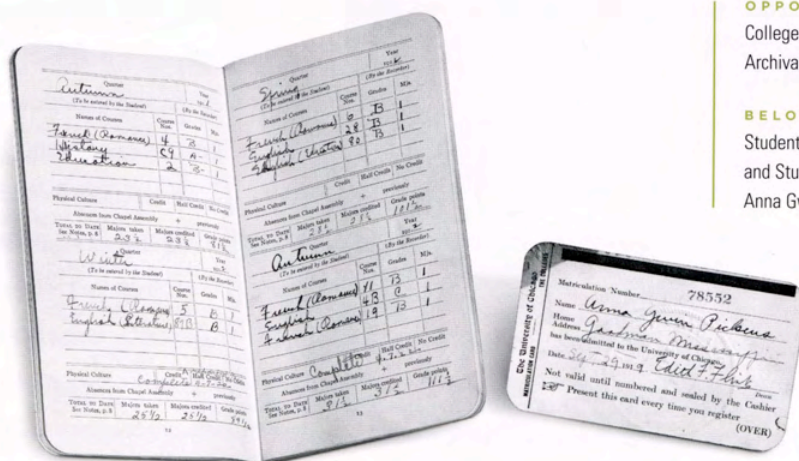 OPPO
College
Archiva
BELO
Student
and Stu
Anna Gw
Autumn
Quarter
Year
(To be entered by the Student)
(By the Recorder)
Names of Courses
Course Nos.
Grades
Mjs.
French (Romance) 4 B 1
History C9 A- 1
Education 2 B- 1
Physical Culture
Credit
Half Credit
No Credit
Absences from Chapel Assembly
+
previously
TOTAL TO DATE
See Notes, p. 8
Majors taken
Majors credited
Grade points
23½
23½
81½
Winter
Quarter
Year
(To be entered by the Student)
(By the Recorder)
Names of Courses
Course Nos.
Grades
Mjs.
French (Romance) 5 B 1
English (Literature) B 1
Physical Culture
Credit
Half Credit
No Credit
Complete
Absences from Chapel Assembly
+
previously
TOTAL TO DATE
See Notes, p. 8
Majors taken
Majors credited
Grade points
25½
25½
Spring
Quarter
Year
(To be entered by the Student)
(By the Recorder)
Names of Courses
Course Nos.
Grades
Mjs.
French (Romance) 6 B 1
English 28 B 1
English 80 B 1
Physical Culture
Credit
Half Credit
No Credit
Absences from Chapel Assembly
+
previously
TOTAL TO DATE
See Notes, p. 8
Majors taken
Majors credited
Grade points
101½
Autumn
Quarter
Year
(To be entered by the Student)
(By the Recorder)
Names of Courses
Course Nos.
Grades
Mjs.
French (Romance) 11 B 1
English 4B C 1
French (Romance) 19 B 1
Physical Culture
Complete
Credit
Half Credit
No Credit
Absences from Chapel Assembly
+
previously
TOTAL TO DATE
See Notes, p. 8
Majors taken
Majors credited
Grade points
31½
The University of Chicago
THE COLLEGES
MATRICULATION CARD
Matriculation Number 78552
Name Anna Gwin Pickens
Home
Address Goodman Mississippi
has been admitted to the University of Chicago.
Date Sept 29 1919 Edith F. Flint
Dean
Not valid until numbered and sealed by the Cashier
Present this card every time you register
(OVER)